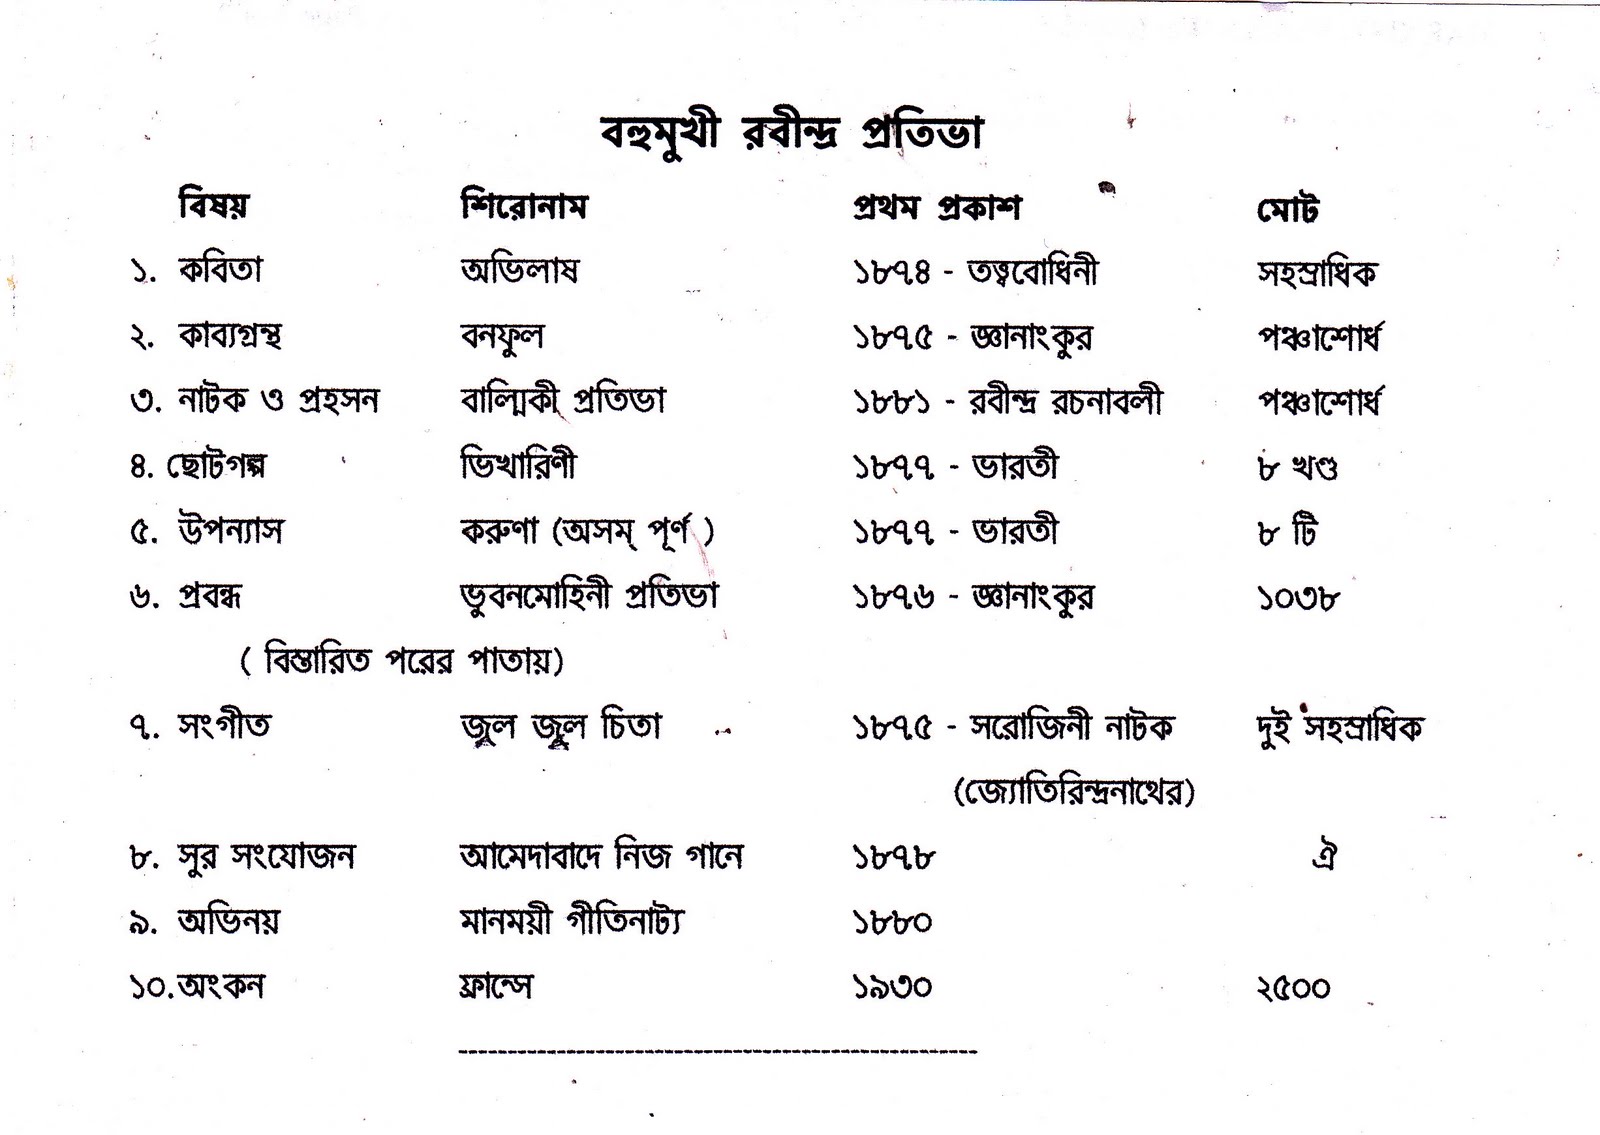 বহুমুখী রবীন্দ্র প্রতিভা
বিষয় শিরোনাম প্রথম প্রকাশ মোট
১. কবিতা অভিলাষ ১৮৭৪ - তত্ত্ববোধিনী সহস্রাধিক
২. কাব্যগ্রন্থ বনফুল ১৮৭৫ - জ্ঞানাংকুর পঞ্চাশোর্ধ
৩. নাটক ও প্রহসন বাল্মিকী প্রতিভা ১৮৮১ - রবীন্দ্র রচনাবলী পঞ্চাশোর্ধ
৪. ছোটগল্প ভিখারিণী ১৮৭৭ - ভারতী ৮ খণ্ড
৫. উপন্যাস করুণা (অসম্ পূর্ণ ) ১৮৭৭ - ভারতী ৮ টি
৬. প্রবন্ধ ভুবনমোহিনী প্রতিভা ১৮৭৬ - জ্ঞানাংকুর ১০৩৮
( বিস্তারিত পরের পাতায়)
৭. সংগীত জ্বল জ্বল চিতা ১৮৭৫ - সরোজিনী নাটক দুই সহস্রাধিক
(জ্যোতিরিন্দ্রনাথের)
৮. সুর সংযোজন আমেদাবাদে নিজ গানে ১৮৭৮ ঐ
৯. অভিনয় মানময়ী গীতিনাট্য ১৮৮০
১০. অংকন ফ্রান্সে ১৯৩০ ২৫০০